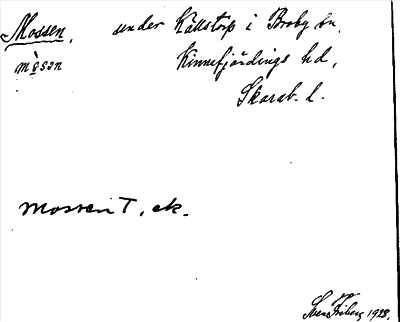 Mossen, under Källstorp i Broby sn,
mòsən Kinnefjärdings hd,
Skarab. l.
Mossen T, ek.
Sven Friberg 1928.